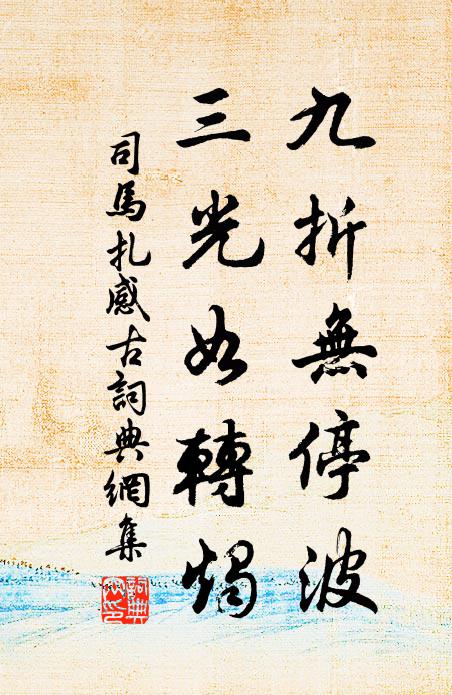 九折無停波
三光如轉燭
司馬扎感古詞典網集